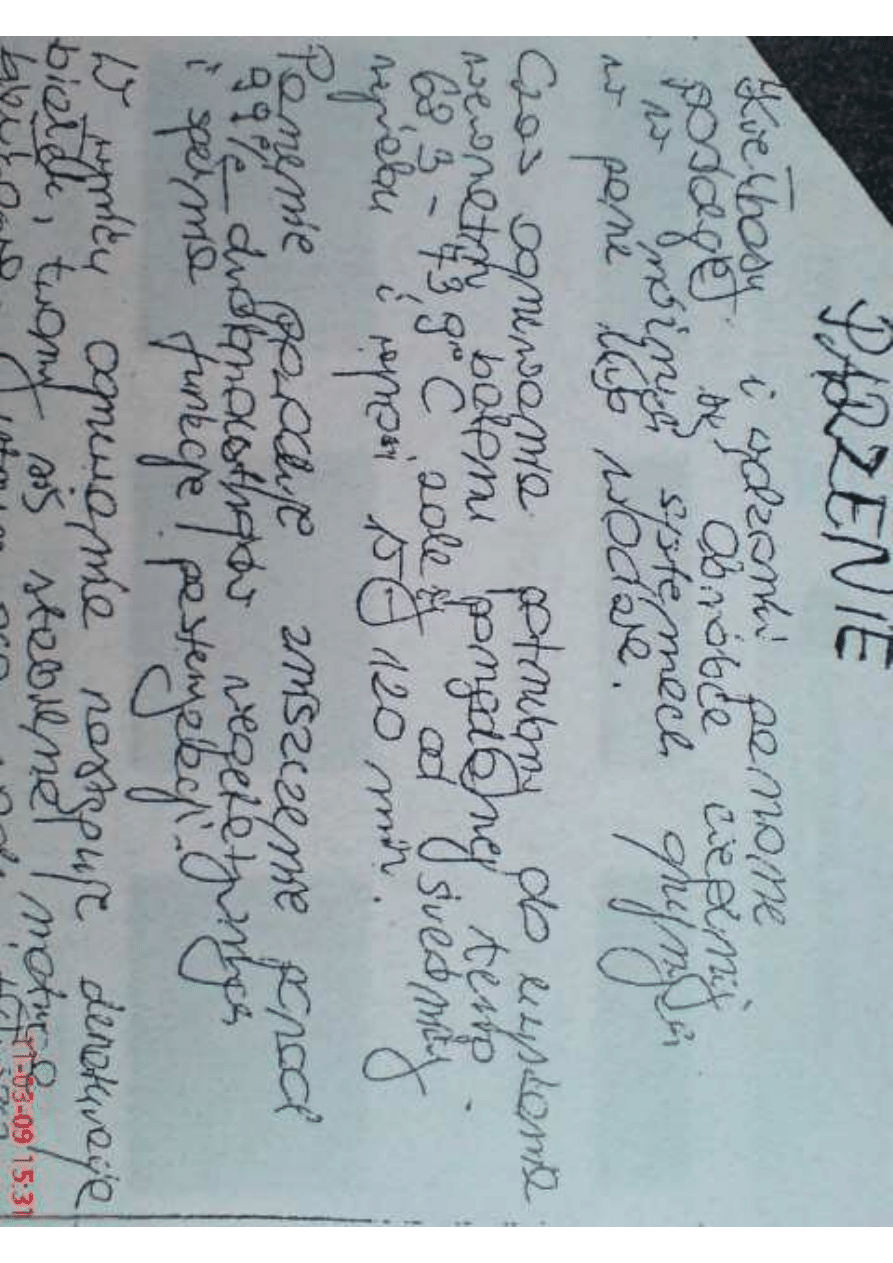 PARZENIE
Kiełbasy i wędzonki parzone
poddaje się obróbce cieplnej
w różnych systemach grzejnych
w parze lub wodzie.
Czas ogrzewania potrzebny do uzyskania
wewnątrz batonu pożądanej temp.
68 - 73 °C zależy od średnicy
wyrobu i wynosi 15 120 min.
Parzenie powoduje zniszczenie ponad
99% drobnoustrojów wegetatywnych
i spełnia funkcję pasteryzacji.
W wyniku ogrzewania następuje denaturacja
białek, tworzy się stabilna
11-03-09 15:31